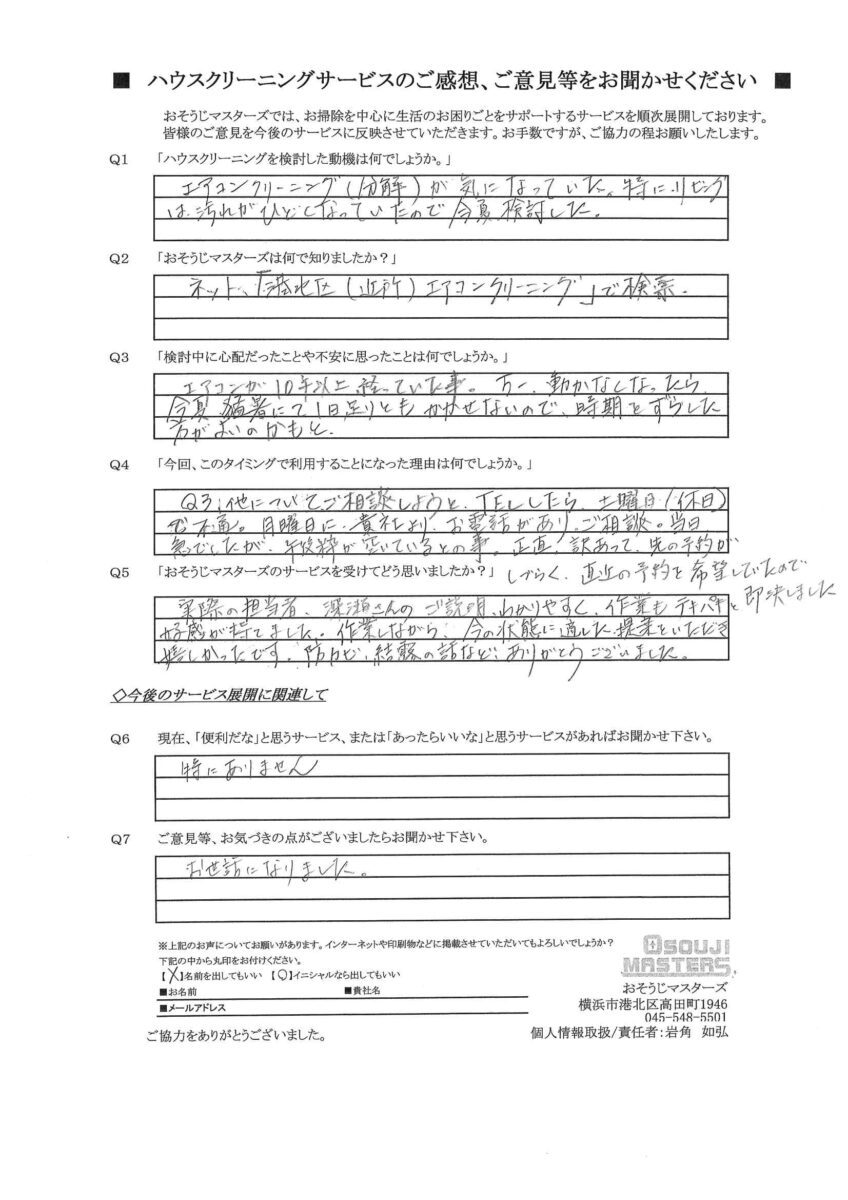 ■ ハウスクリーニングサービスのご感想、ご意見等をお聞かせください ■
おそうじマスターズでは、お掃除を中心に生活のお困りごとをサポートするサービスを順次展開しております。
皆様のご意見を今後のサービスに反映させていただきます。お手数ですが、ご協力の程お願いしたします。
Q1 「ハウスクリーニングを検討した動機は何でしょうか。」
エアコンクリーニング(分解)が気になっていた。特にリビング
は汚れがひどくなっていたので今夏検討した。
Q2 「おそうじマスターズは何で知りましたか?」
ネット、「港北区(近所)エアコンクリーニング」で検索。
Q3 「検討中に心配だったことや不安に思ったことは何でしょうか。」
エアコンが10年以上経っていた事。万一、動かなくなったら、
今夏、猛暑にて1日足りともかかせないので、時期をずらした
方がよいのかもと。
Q4 「今回、このタイミングで利用することになった理由は何でしょうか。」
Q3;他についてご相談しようと、TELしたら、土曜日(休日)
で不通。月曜日に、貴社より、お電話があり、ご相談。当日
急でしたが、午後枠が空いているとの事。正直、訳あって、先の予約が
しづらく、直近の予約を希望していたので
即決しました
Q5 「おそうじマスターズのサービスを受けてどう思いましたか?」
実際の担当者、深瀬さんのご説明、わかりやすく、作業もテキパキと
好感が持てました。作業しながら、今の状態に適した提案をいただき
嬉しかったです。防カビ、結露の話など、ありがとうございました。
◇今後のサービス展開に関連して
Q6 現在、「便利だな」と思うサービス、または「あったらいいな」と思うサービスがあればお聞かせ下さい。
特にありません
Q7 ご意見等、お気づきの点がございましたらお聞かせ下さい。
お世話になりました。
※上記のお声についてお願いがあります。インターネットや印刷物などに掲載させていただいてもよろしいでしょうか?
下記の中から丸印をお付けください。
【X】名前を出してもいい 【○】イニシャルなら出してもいい
■お名前 ■貴社名
■メールアドレス
ご協力をありがとうございました。
OSOUJI
MASTERS
おそうじマスターズ
横浜市港北区高田町1946
045-548-5501
個人情報取扱/責任者:岩角 如弘